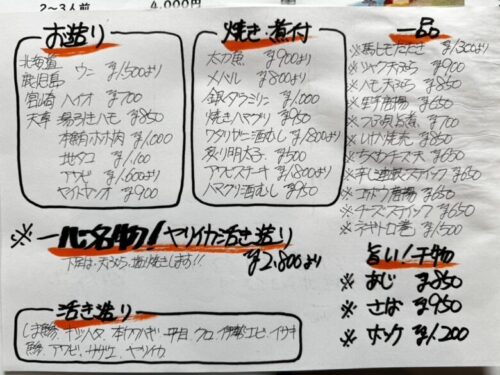 2〜3人前 4,000円
お造り
北海道
鹿児島 ウニ ¥1,500より
宮崎 ヘイオ ¥700
天草 湯引きハモ ¥850
ホホ肉 ¥1,000
地タコ ¥1,100
アワビ ¥1,600より
ヤイトガツオ ¥900
焼き・煮付
太刀魚 ¥900より
メバル ¥800より
銀ダラミリン ¥1,000
焼きハマグリ ¥950
ワタリガニ酒むし ¥1,800より
炙り明太子 ¥500
アワビステーキ ¥1,800より
ハマグリ酒むし ¥950
一品
※ ¥1,300より
※シャク天ぷら ¥900
※ハモ天ぷら ¥850
※唐揚 ¥650
※煮 ¥700
※ ¥850
※ちくわチーズ天 ¥650
※干し スティック ¥650
※唐揚 ¥650
※チーズスティック ¥650
※ネギトロ巻 ¥1,500
※一心名物!ヤリイカ活き造り
下足は・天ぷら・塩焼きします!! ¥2,800より
旨い!干物
※あじ ¥850
※さば ¥950
※ホッケ ¥1,200
活き造り
しま鯵、キジハタ、本カワハギ、平目、クロ、伊勢エビ、イサキ
鯵、アワビ、サザエ、ヤリイカ